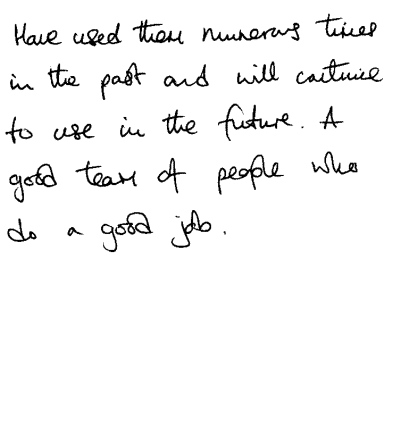 Have used them numerous times
in the past and will continue
to use in the future. A
good team of people who
do a good job.